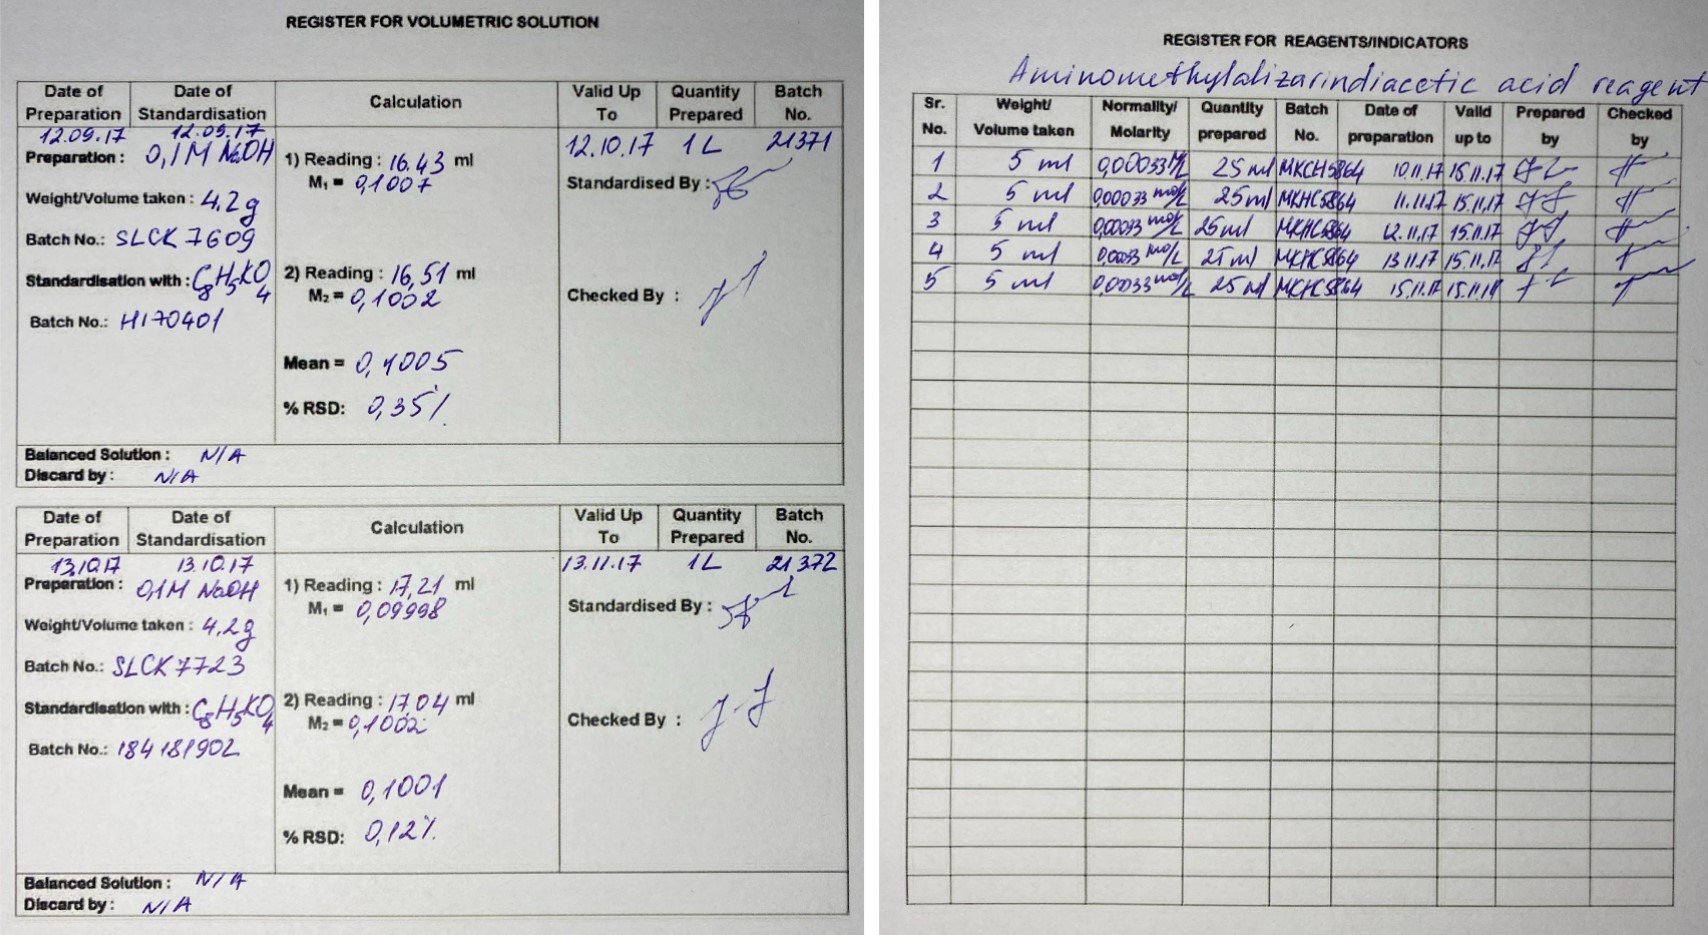 REGISTER FOR VOLUMETRIC SOLUTION
Date of Preparation Date of Standardisation Calculation Valid Up To Quantity Prepared Batch No.
12.09.17 12.09.17 12.10.17 1L 21371
Preparation : 0,1M NaOH
1) Reading : 16.43 ml
M₁ = 0,1007
Standardised By :
Weight/Volume taken : 4.2g
Batch No.: SLCK 7609
Standardisation with : C₈H₅KO₄
2) Reading : 16,51 ml
M₂ = 0,1002
Checked By :
Batch No.: H170401
Mean = 0,1005
% RSD: 0,35%
Balanced Solution : N/A
Discard by : N/A
Date of Preparation Date of Standardisation Calculation Valid Up To Quantity Prepared Batch No.
13.10.17 13.10.17 13.11.17 1L 21372
Preparation : 0,1M NaOH
1) Reading : 17,21 ml
M₁ = 0,09998
Standardised By :
Weight/Volume taken : 4.2g
Batch No.: SLCK 7723
Standardisation with : C₈H₅KO₄
2) Reading : 17,04 ml
M₂ = 0,1002
Checked By :
Batch No.: 184181902
Mean = 0,1001
% RSD: 0,12%
Balanced Solution : N/A
Discard by : N/A
REGISTER FOR REAGENTS/INDICATORS
Aminomethylalizarindiacetic acid reagent
Sr. No. Weight/ Volume taken Normality/ Molarity Quantity prepared Batch No. Date of preparation Valid up to Prepared by Checked by
1 5 ml 0,00033 M/L 25 ml 10.11.17 15.11.17
2 5 ml 0,00033 mol/L 25 ml MKHC5864 11.11.17 15.11.17
3 5 ml 0,00033 mol/L 25 ml MKHC5864 12.11.17 15.11.17
4 5 ml 0,00033 mol/L 25 ml MKHC5864 13.11.17 15.11.17
5 5 ml 0,00033 mol/L 25 ml MKHC5864 15.11.17